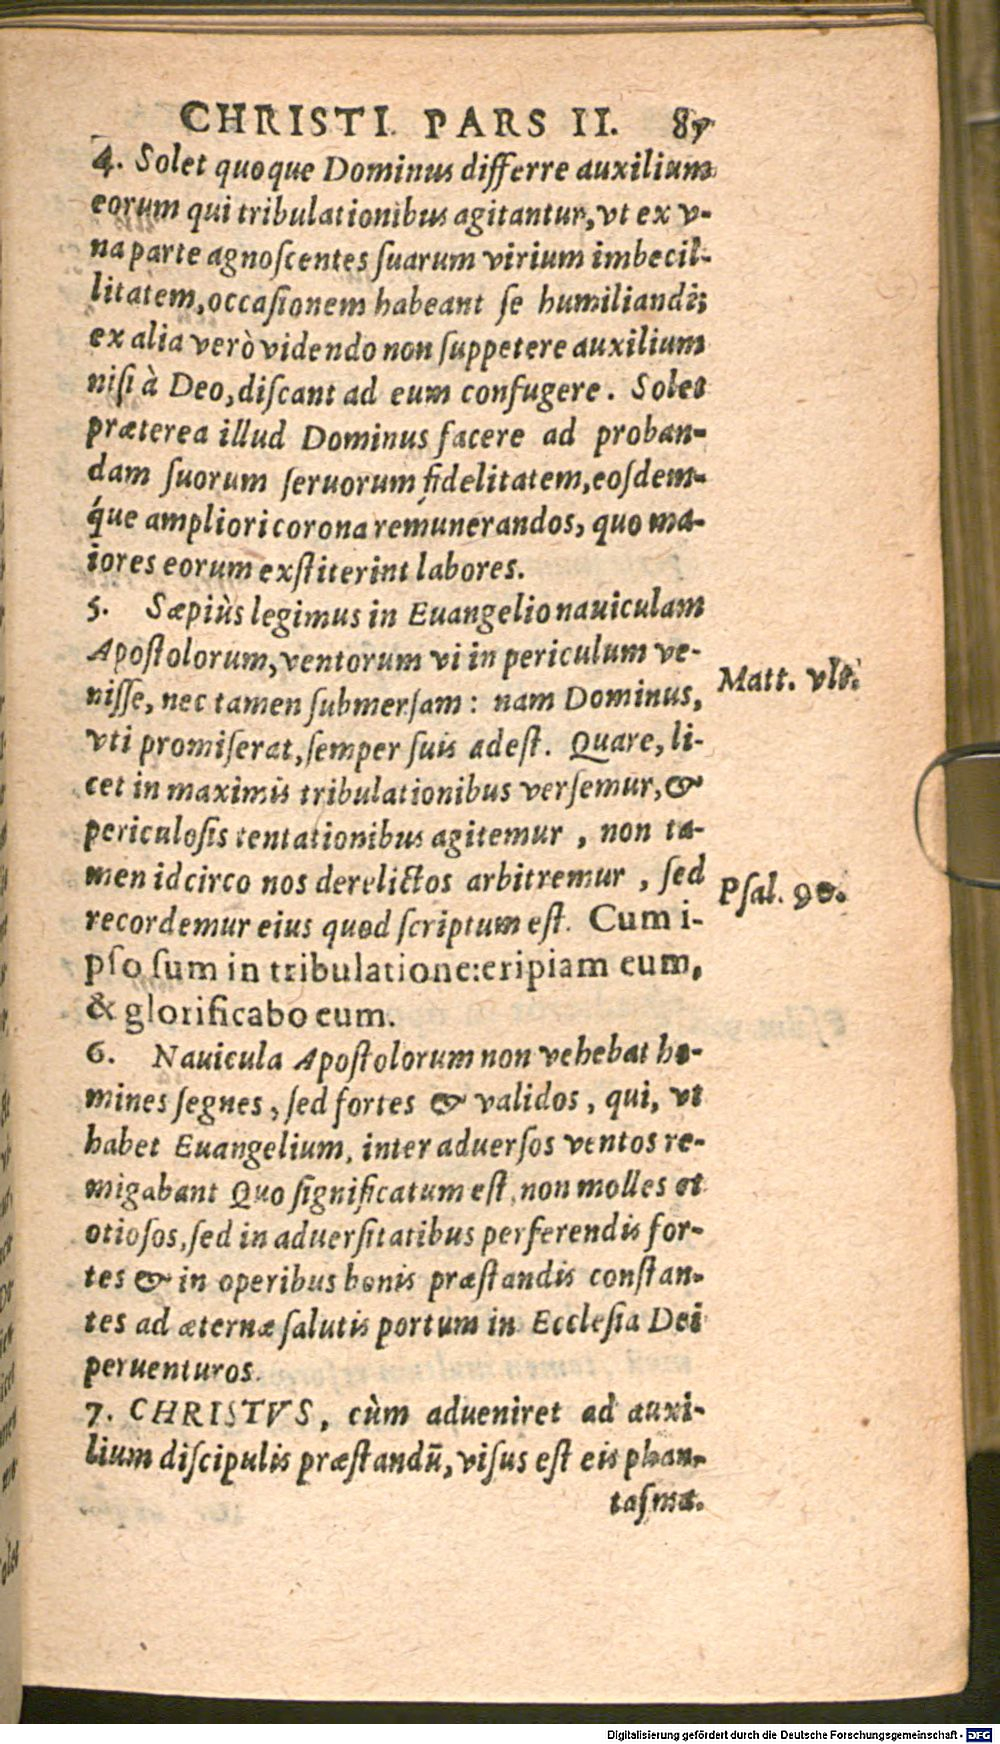 CHRISTI. PARS II. 87
4. Solet quoque Dominus differre auxilium
eorum qui tribulationibus agitantur, vt ex v-
na parte agnoſcentes ſuarum virium imbecil-
litatem, occaſionem habeant ſe humiliandi;
ex alia verò videndo non ſuppetere auxilium
niſi à Deo, diſcant ad eum confugere. Solet
præterea illud Dominus facere ad proban-
dam ſuorum ſeruorum fidelitatem, eoſdem-
q́ue ampliori corona remunerandos, quo ma-
iores eorum exſtiterint labores.
5. Sæpiùs legimus in Euangelio nauiculam
Apoſtolorum, ventorum vi in periculum ve-
niſſe, nec tamen ſubmerſam: nam Dominus,
Matt. vlt.
vti promiſerat, ſemper ſuis adeſt. Quare, li-
cet in maximis tribulationibus verſemur, &
periculoſis tentationibus agitemur, non ta-
men idcirco nos derelictos arbitremur, ſed
Pſal. 90.
recordemur eius quod ſcriptum eſt. Cum i-
pſo ſum in tribulatione: eripiam eum,
& glorificabo eum.
6. Nauicula Apoſtolorum non vehebat ho-
mines ſegnes, ſed fortes & validos, qui, vt
habet Euangelium, inter aduerſos ventos re-
migabant Quo ſignificatum eſt, non molles et
otioſos, ſed in aduerſitatibus perferendis for-
tes & in operibus bonis præſtandis conſtan-
tes ad æternæ ſalutis portum in Eccleſia Dei
peruenturos.
7. CHRISTVS, cùm adueniret ad auxi-
lium diſcipulis præſtandū, viſus eſt eis phan-
taſma.
Digitalisierung gefördert durch die Deutsche Forschungsgemeinschaft - DFG